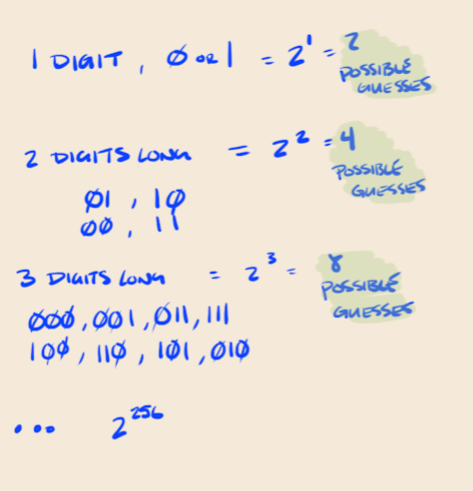 1 DIGIT, 0 OR 1 = 2^1 = 2
POSSIBLE
GUESSES
2 DIGITS LONG = 2^2 = 4
POSSIBLE
GUESSES
01, 10
00, 11
3 DIGITS LONG = 2^3 = 8
POSSIBLE
GUESSES
000, 001, 011, 111
100, 110, 101, 010
... 2^256